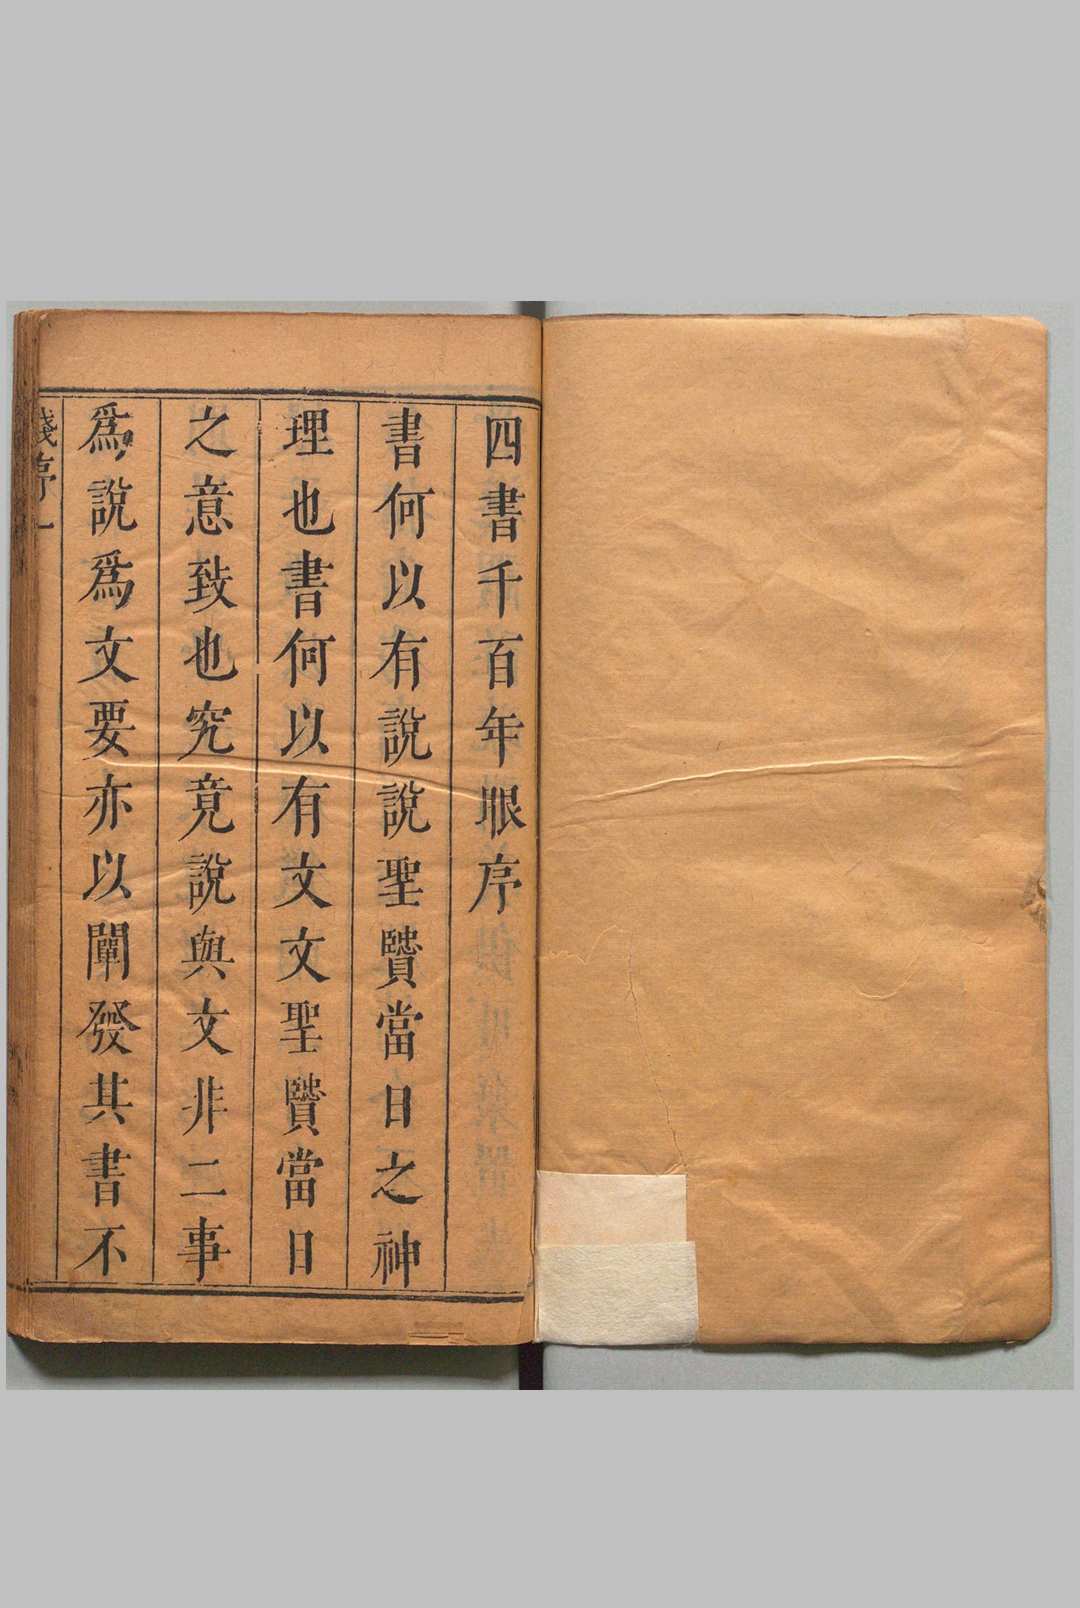 四書千百年眼序
書何以有說說聖賢當日之神
理也書何以有文文聖賢當日
之意致也究竟說與文非二事
爲說爲文要亦以闡發其書不
序一